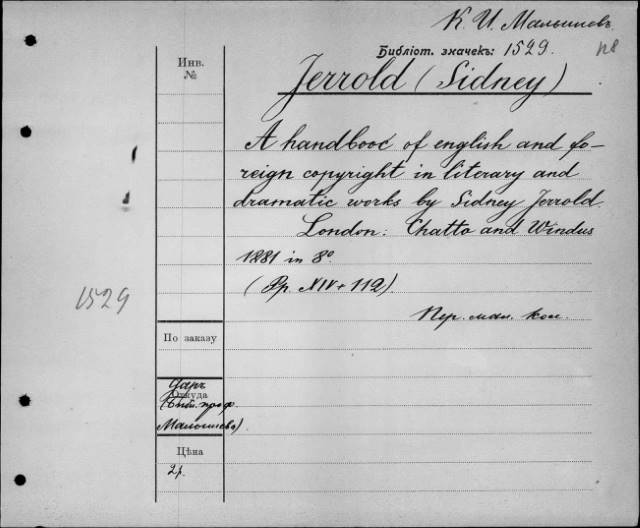 К. И. Малышевъ
Библіот. значекъ: 1529.
Инв.
№
Jerrold (Sidney)
A handbooc of english and fo-
reign copyright in literary and
dramatic works by Sidney Jerrold.
London: Chatto and Windus
1881 in 8º
(Pp. XIV + 112)
1529
Пер. мал. кол.
По заказу
Даръ
Откуда
(Библ. проф.
Малышева).
Цѣна
2 р.